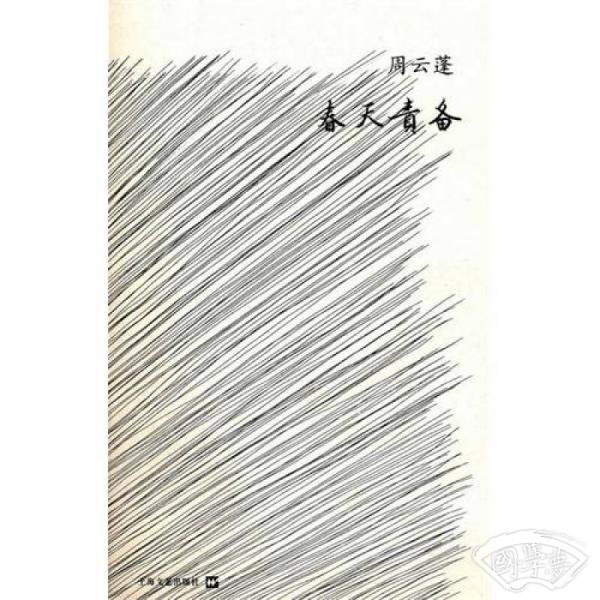 周云蓬
春天责备
上海文艺出版社
國學夢